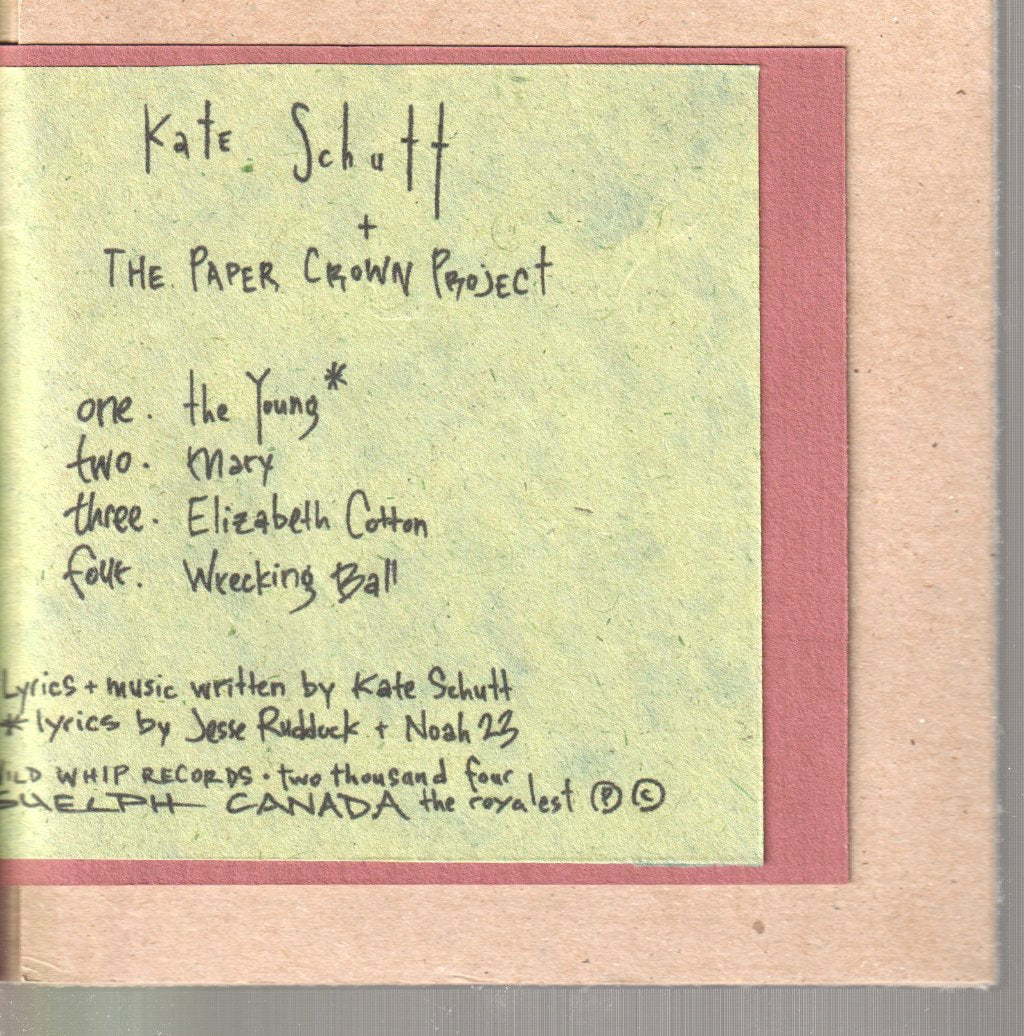 Kate Schutt
+
THE PAPER CROWN PROJECT
one. the Young*
two. Mary
three. Elizabeth Cotton
four. Wrecking Ball
Lyrics + music written by Kate Schutt
* lyrics by Jesse Ruddock + Noah 23
WILD WHIP RECORDS • two thousand four
GUELPH CANADA the royalest ℗ ©